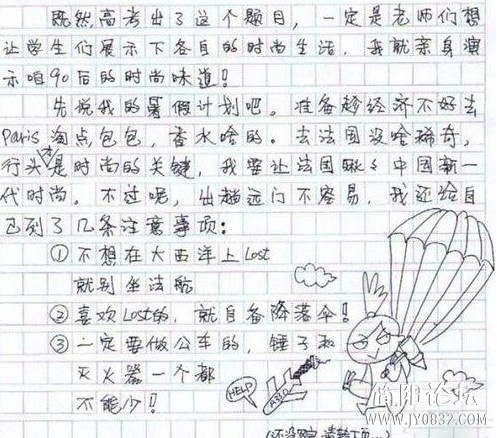 既然高考出了这个题目，一定是老师们想
让学生们展示下各自的时尚生活，我就亲身演
示咱90后的时尚味道！
先说我的暑假计划吧。准备趁经济不好去
Paris淘点包包，香水啥的。去法国没啥稀奇，
行头才是时尚的关键，我要让法国瞅々中国新一
代时尚。不过呢，出趟远门不容易，我还给自
己列了几条注意事项：
①不想在大西洋上Lost
就别坐法航
②喜欢Lost的，就自备降落伞！
③一定要做公车的，锤子和
灭火器一个都
不能少！
HELP
A330
(还没写完，请转下页…)
简阳论坛
WWW.JY0832.COM